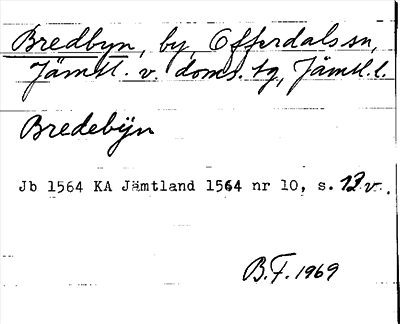 Bredbyn, by, Offerdals sn,
Jämtl. v. doms. tg, Jämtl. l.
Bredebÿn
Jb 1564 KA Jämtland 1564 nr 10, s. 12 v.
B.F. 1969